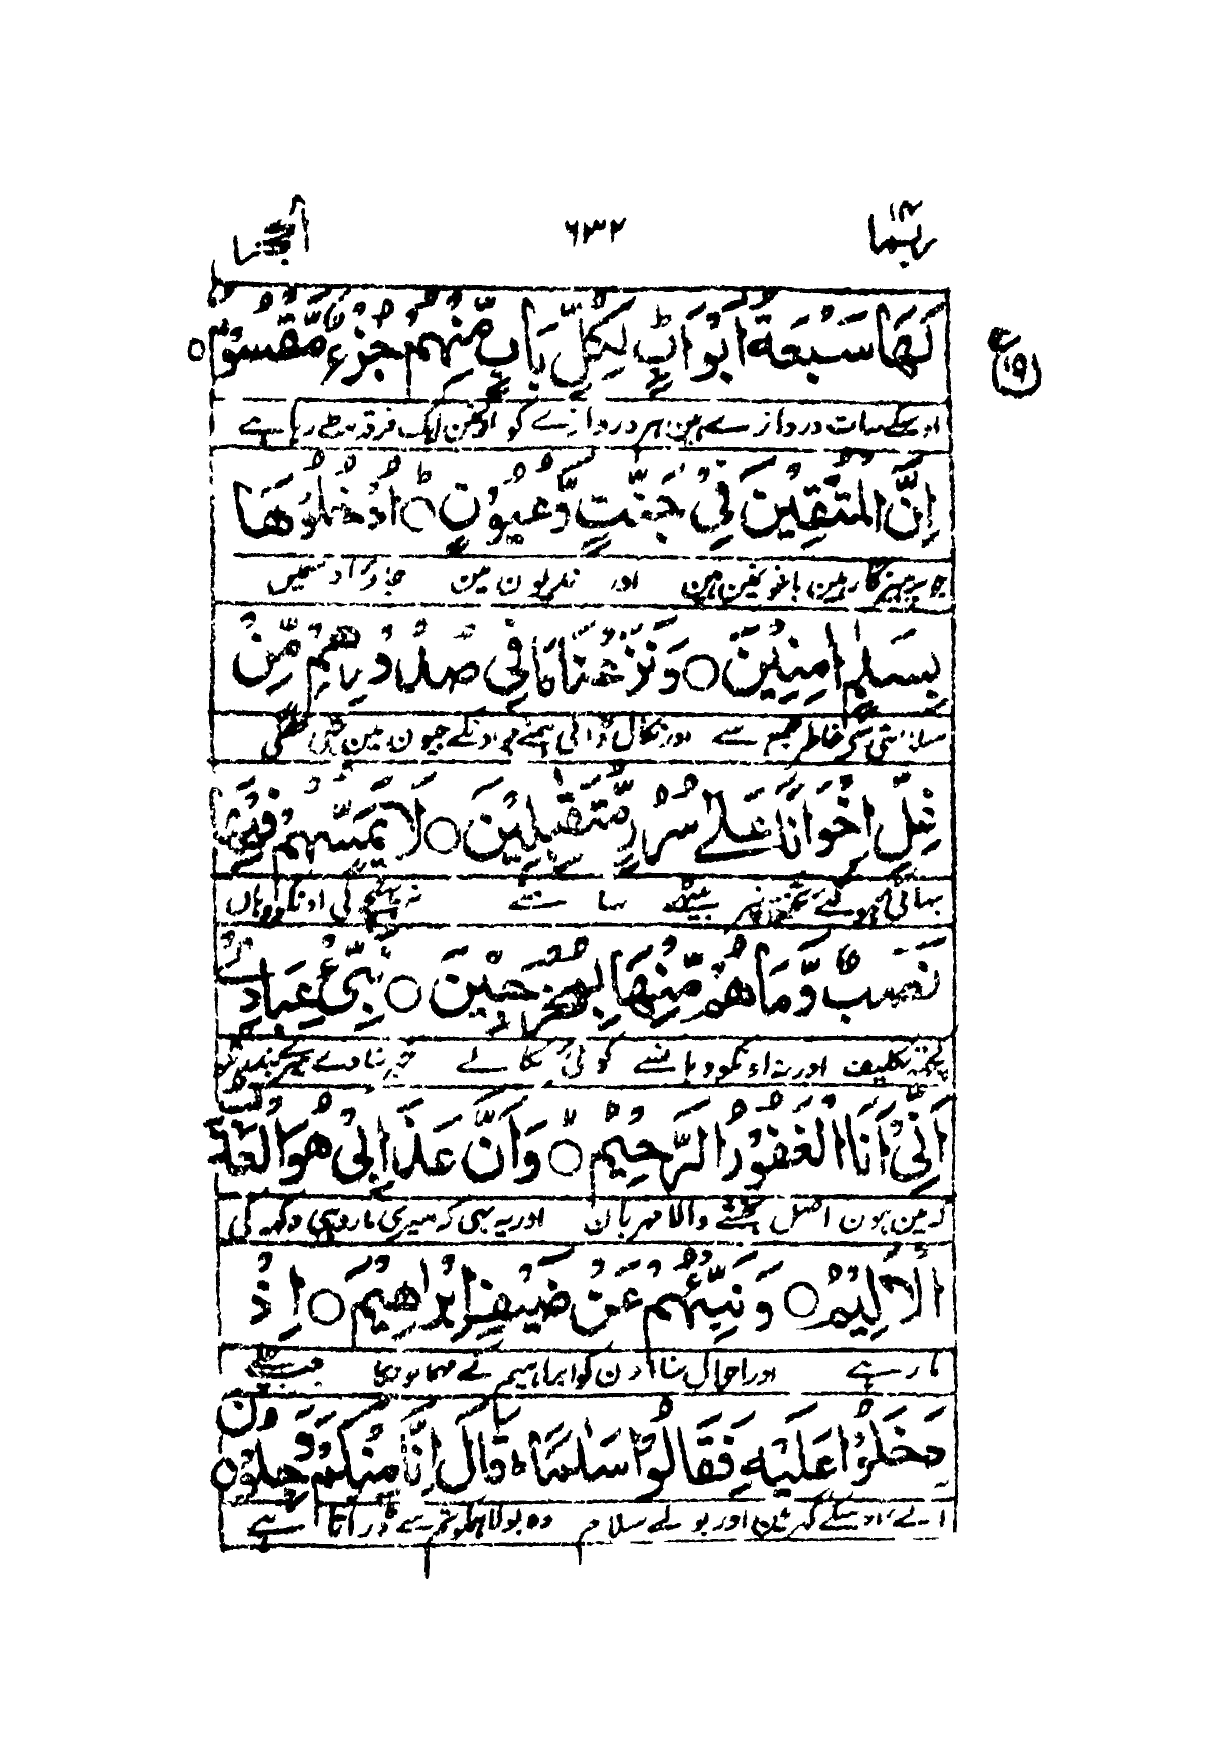 ربما ۱۴ ۶۳۲ الحجر
لَهَا سَبْعَةُ اَبْوَابٍ ؕ لِكُلِّ بَابٍ مِّنْهُمْ جُزْءٌ مَّقْسُوْمٌ ○
ع ۱۹
اوسکے سات دروازے ہین ہر دروازے کو اونمین ایک فرقہ بٹ رہا ہے
اِنَّ الْمُتَّقِيْنَ فِيْ جَنّٰتٍ وَّعُيُوْنٍ ؕ○ اُدْخُلُوْهَا
جو پرہیزگار ہین باغونمین ہین اور ندیون مین جاؤ اونمین
بِسَلٰمٍ اٰمِنِيْنَ ○ وَنَزَعْنَا مَا فِيْ صُدُوْرِهِمْ مِّنْ
سلامتی سے خاطر جمع سے اور نکال ڈالی ہمنے جو اونکے جیون مین تھی خفگی
غِلٍّ اِخْوَانًا عَلٰى سُرُرٍ مُّتَقٰبِلِيْنَ ○ لَا يَمَسُّهُمْ فِيْهَا
بھائی ہو گئے تختونپر بیٹھے سامنے نہ پہنچے گی اونکو وہان
نَصَبٌ وَّمَا هُمْ مِّنْهَا بِمُخْرَجِيْنَ ○ نَبِّئْ عِبَادِيْ
کچھ تکلیف اور نہ اونکو وہانسے کوئی نکالے خبر سنا دے میرے بندونکو
اَنِّيْ اَنَا الْغَفُوْرُ الرَّحِيْمُ ○ وَاَنَّ عَذَابِيْ هُوَ الْعَذَابُ
کہ مین ہون اصل بخشنے والا مہربان اور یہ بھی کہ میری مار وہی دکھہ کی
الْاَلِيْمُ ○ وَنَبِّئْهُمْ عَنْ ضَيْفِ اِبْرَاهِيْمَ ○ اِذْ
مار ہے اور احوال سنا اون کو ابراہیم کے مہمانونکا جب چلے
دَخَلُوْا عَلَيْهِ فَقَالُوْا سَلٰمًا ؕ قَالَ اِنَّا مِنْكُمْ وَجِلُوْنَ ○
آئے اوسکے گھر مین اور بولے سلام وہ بولا ہمکو تم سے ڈر آتا ہے